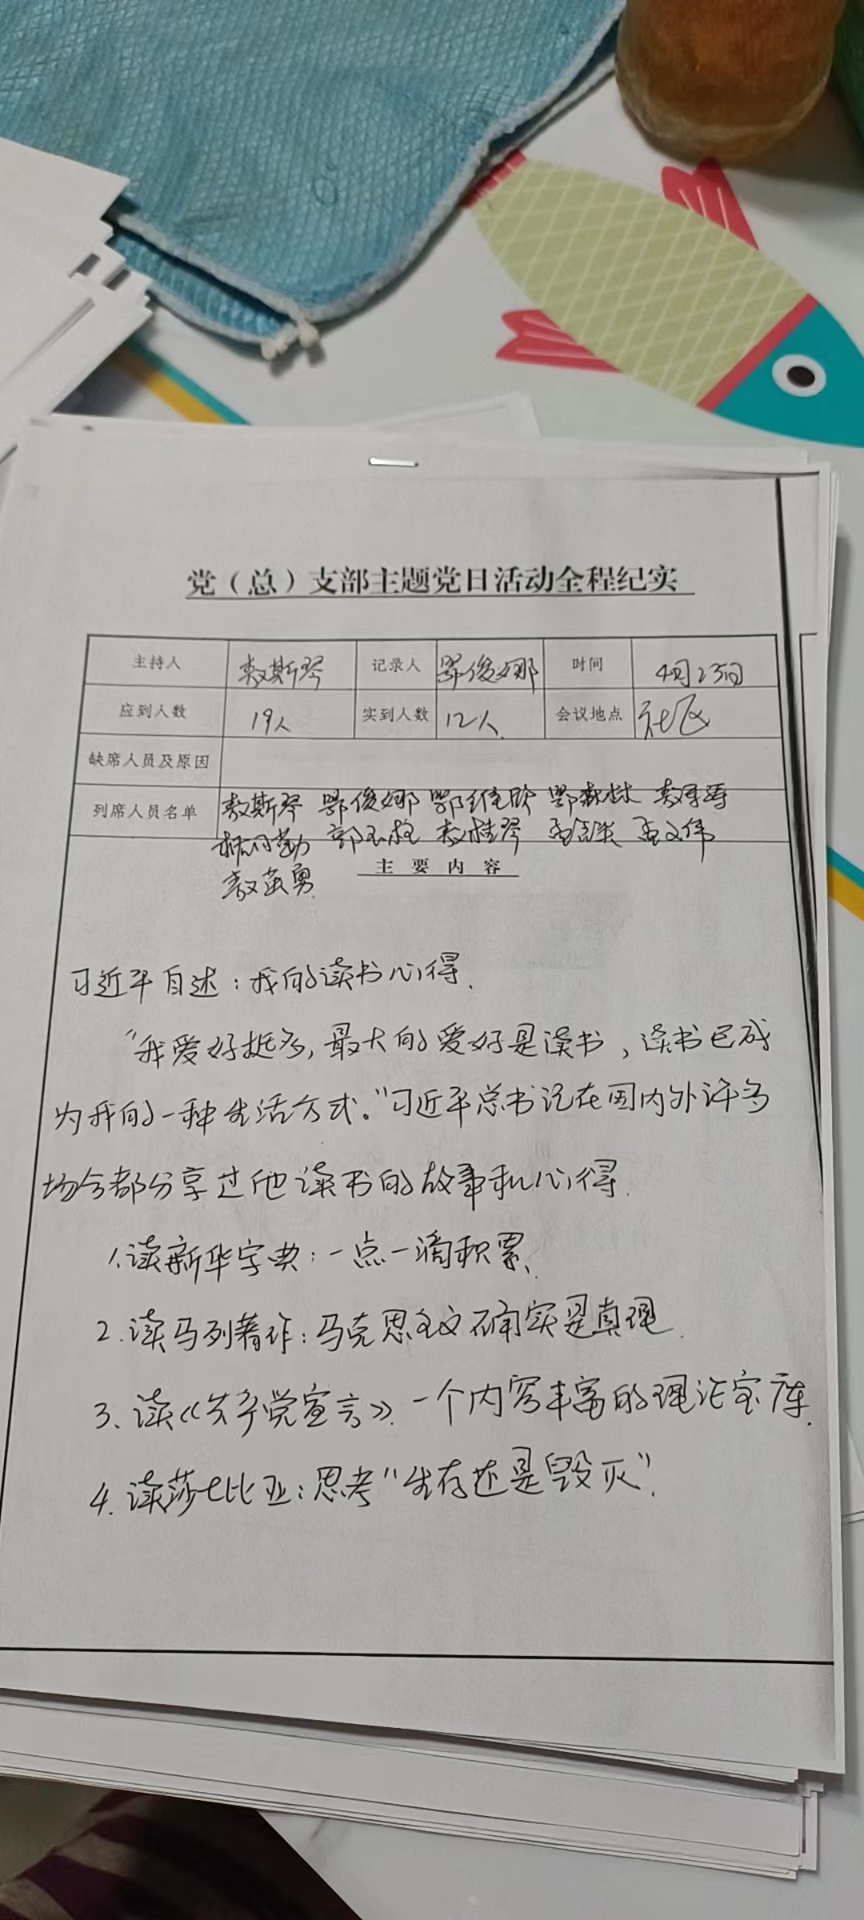 党（总）支部主题党日活动全程纪实
主持人 敖斯琴 记录人 鄂俊娜 时间 4月23日
应到人数 19人 实到人数 12人 会议地点 社区
缺席人员及原因
列席人员名单 敖斯琴 鄂俊娜 鄂维欣
郭玉柱 敖桂琴 孟文伟
敖英勇
主要内容
习近平自述：我的读书心得.
“我爱好挺多,最大的爱好是读书，读书已成
为我的一种生活方式。”习近平总书记在国内外许多
场合都分享过他读书的故事和心得.
1.读新华字典：一点一滴积累、
2.读马列著作：马克思主义确实是真理.
3、读《共产党宣言》.一个内容丰富的理论宝库.
4.读莎士比亚：思考“生存还是毁灭”.